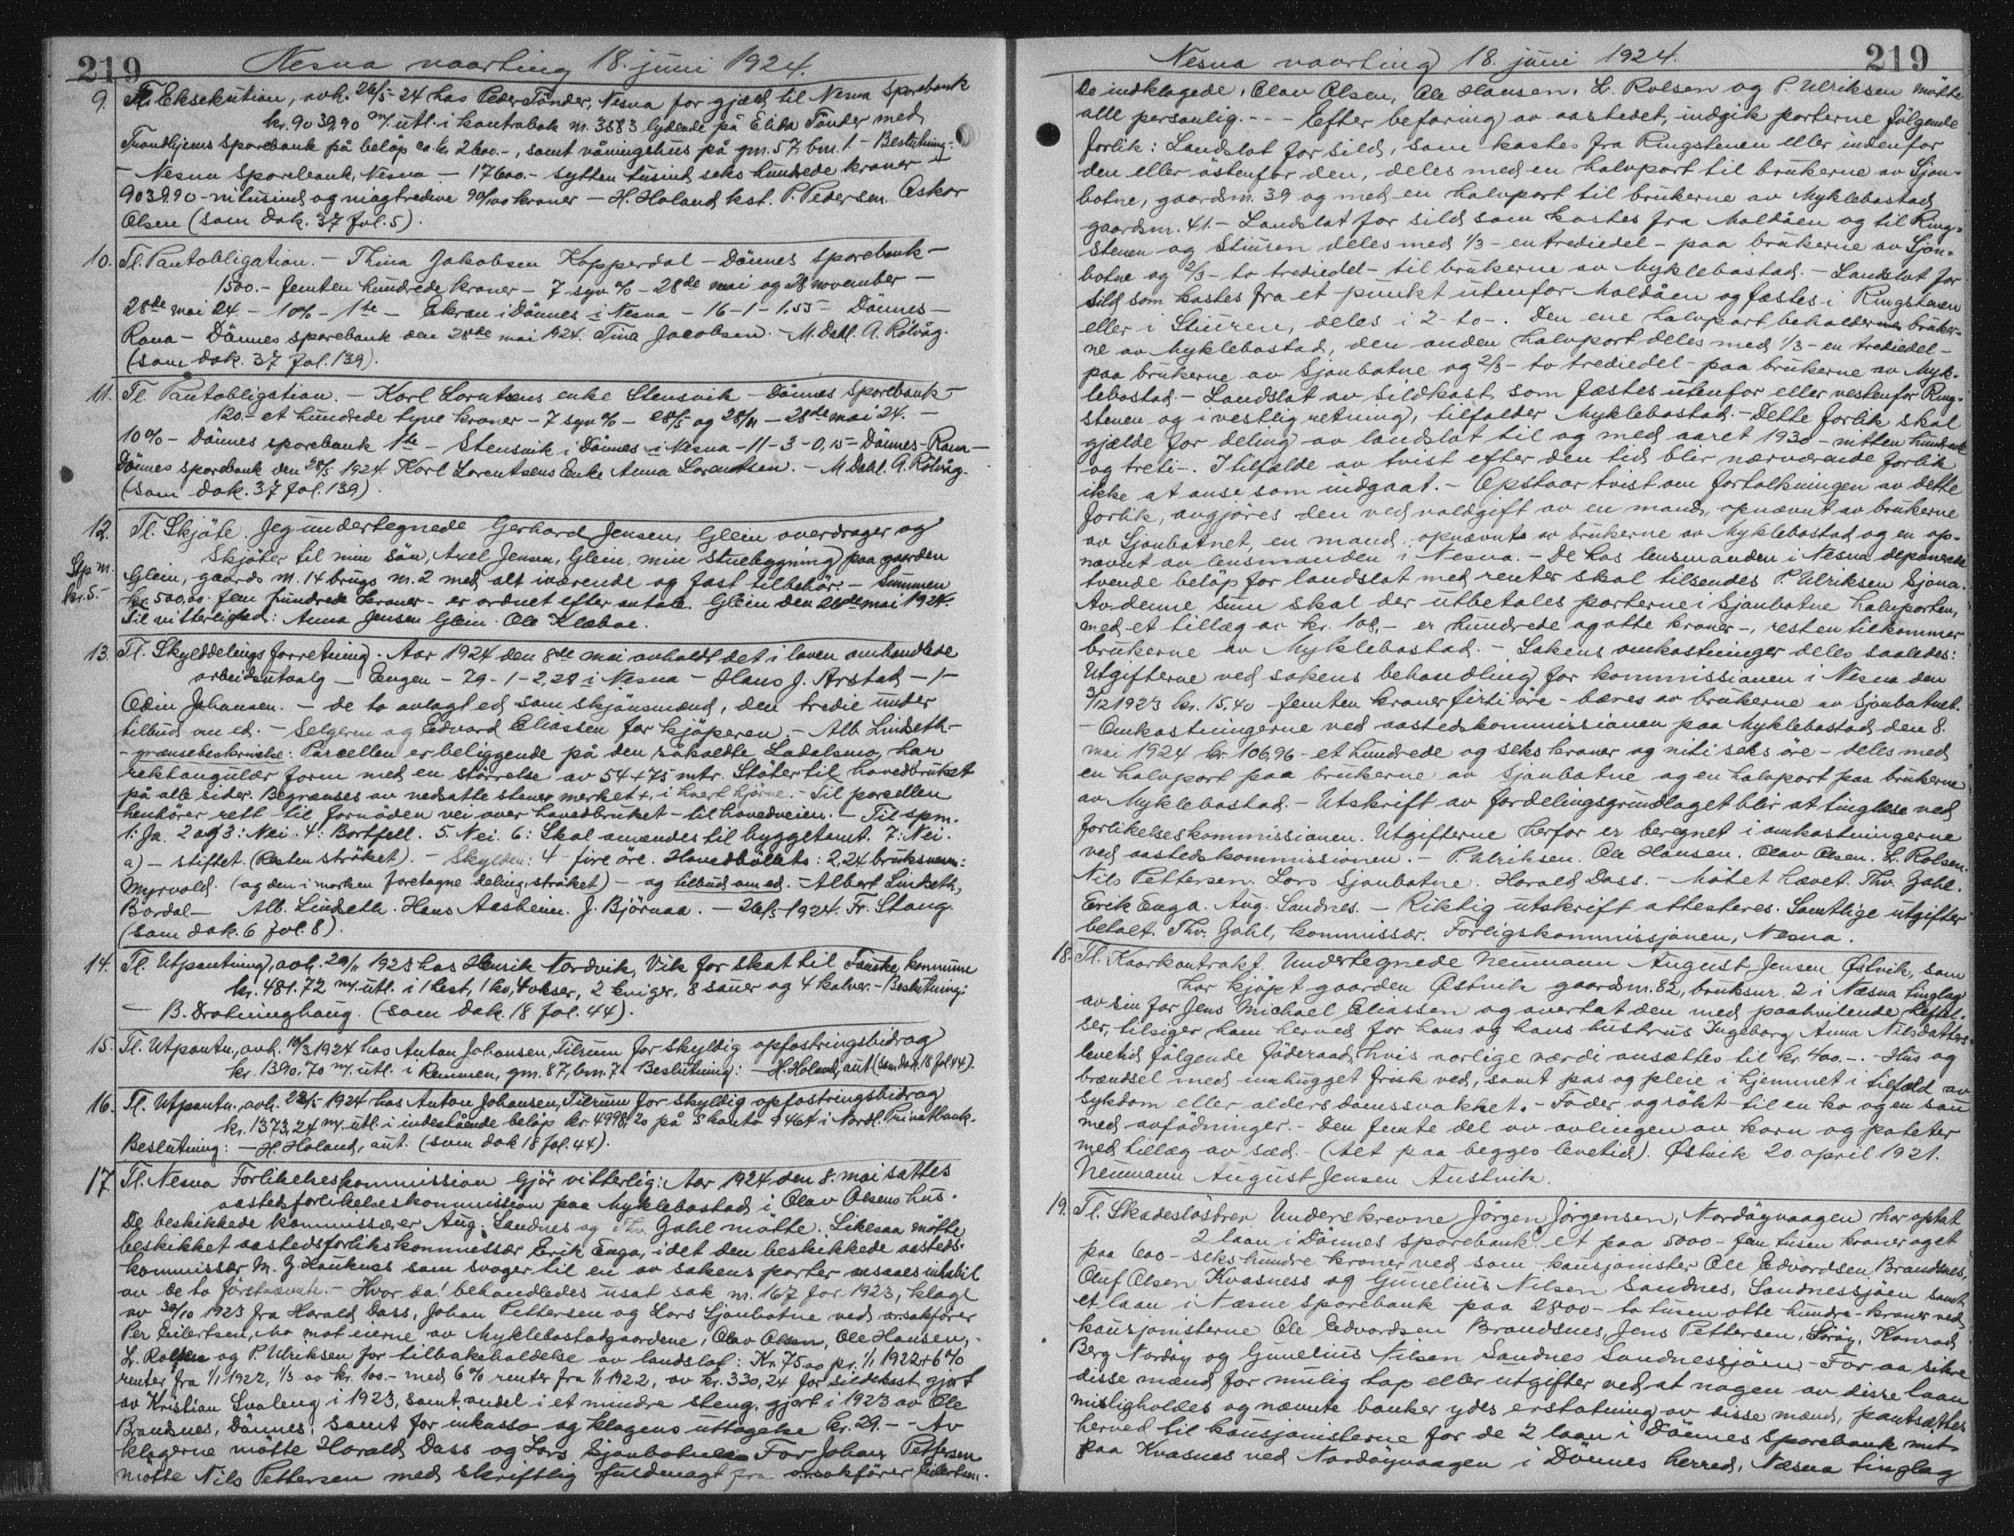 219 Nesna vaarting 18. juni 1924.
9. Tl. Eksekution, avh. 26/5-24 hos Peder Tönder, Nesna for gjæld til Nesna Sparebank
kr. 9039.90 m/. utl. i kontrabok nr. 3583 lydende på Elida Tönder med
Trondhjems Sparebank på belöp ca. kr. 2600.-, samt våningshus på gm. 57, bm. 1 - Beslutning:
- Nesna Sparebank, Nesna - 17600.- sytten tusind seks hundrede kroner -
9039.90 - nitusind og niogtredive 90/100 kroner - H. Haland kst. P. Pedersen. Oskar
Olsen (som dok. 37 fol. 5).
10. Tl. Pantobligation. - Thina Jakobsen Kopperdal - Dönnes Sparebank -
1500.- femten hundrede kroner - 7 syv % - 28de mai og 28 november -
28de mai 24. - 10% - 1ste - Ekran i Dönnes i Nesna - 16-1-1.55 - Dönnes -
Rana - Dönnes sparebank den 28de mai 1924. Tina Jacobsen. - M. Dahl. A. Rölvåg.
(som dok. 37 fol. 139).
11. Tl. Pantobligation. - Karl Lorntsens enke Stensvik - Dönnes Sparebank -
120.- et hundrede tyve kroner - 7 syv % - 28/5 og 28/11 - 28de mai 24. -
10% - Dönnes sparebank 1ste - Stensvik i Dönnes i Nesna - 11-3-0,15 - Dönnes - Rana -
Dönnes sparebank den 28/5 1924. Karl Lorentsens Enke Anna Lorentsen. - M. Dahl. A. Rölvåg.
(som dok. 37 fol. 139).
12. Tl. Skjöte. Jeg undertegnede Gerhard Jensen, Glein overdrager og
skjöter til min sön, Axel Jensen, Glein, min stuebygning paa gaarden
Stp. m. Glein, gaards nr. 14 brugs nr. 2 med alt iværende og fast tilbehör. - Summen
kr. 5.- kr. 500,00 fem hundrede kroner - er ordnet efter avtale. Glein den mai 1924.
Til vitterlighed: Anna Jensen Glein. Ole Klæboe.
13. Tl. Skylddelingsforretning. Aar 1924 den 8de mai avholdt det i loven omhandlede
arbeidsutvalg - Engen - 79-1-2,28 i Nesna - Hans J. Arstad - 1 -
Odin Johansen. - de to avlagt ed som skjönsmænd, den tredie under
tilbud om ed. - Selgeren og Edvard Eliassen for kjöperen. - Alb. Lindseth -
- grænsebeskrivelse: Parcellen er beliggende på den såkaldte Ladalsmo, har
rektangulær form med en störrelse av 54 x 75 mtr. Stöter til hovedbruket
på alle sider. Begrænses av nedsatte stener merket +, i hvert hjörne. - Til parsellen
henhörer rett til fornöden vei over hovedbruket - til hovedveien. - Til spm.
1: Ja. 2 og 3: Nei. 4: Bortfell. 5 Nei. 6: Skal anvendes til byggetomt. 7: Nei.
a) - stiftet. (Resten ströket). - Skylden: 4 - fire öre. Hovedbölets: 2,24 bruksnavn:
Myrvold. (og den i marken foretagne deling, ströket) - og tilbud om ed. - Albert Lindseth,
Bardal - Alb. Lindseth. Hans Aasheim. J. Björnaa. - 26/5-1924. Fr. Stang.
(som dok. 6 fol. 8).
14. Tl. Utpantning, avh. 29/11 1923 hos Henrik Nordvik, Vik for skat til Fauske kommune
kr. 481.72 m/. utl. i 1 hest, 1 ko, 4 okser, 2 kviger, 8 sauer og 4 kalver. - Beslutning:
- B. Drotninghaug. (som dok. 18 fol. 44).
15. Tl. Utpantn., avh. 19/3 1924 hos Anton Johansen, Tilrum for skyldig opfostringsbidrag
kr. 1390.70 m/. utl. i Remmen, gm. 87, bm. 7. Beslutning: - H. Haland, aut. (som dok. 18 fol. 44).
16. Tl. Utpantn., avh. 23/5-1924 hos Anton Johansen, Tilrum for skyldig opfostringsbidrag
kr. 1373,24 m/. utl. i indestående belöp kr. 4998,20 på S konto 9464 i Nordl. Privatbank.
Beslutning: - H. Haland, aut. (som dok 18 fol. 44).
17. Tl. Nesna Forlikelseskommission Gjör vitterlig: Aar 1924, den 8. mai sattes
aastedsforlikelseskommission paa Myklebostad i Olav Olsens hus.
De beskikkede kommissærer Aug. Sandnes og Thv. Gahl mötte. Likesaa mötte
beskikket aastedsforlikskommissær Erik Enga, idet den beskikkede aasteds-
kommissær M. G. Hauknes som svoger til en av sakens parter ansaaes inhabil
av de to förstnævnte. - Hvorda! behandledes usat sak nr. 167 for 1923, klage
av 30/10 1923 fra Harald Dass, Johan Pettersen og Lars Sjonbotne ved orsakförer
Per Eilertsen, Mo mot eierne av Myklebostadgaardene, Olav Olsen, Ole Hansen,
L. Rolsen og P. Ulriksen for tilbakeholdelse av landslot: Kr. 75.00 pr. 1/1 1922 + 6%
renter fra 1/1 1922, 1/3 av kr. 100.- med 6% renter fra 1/1 1922, av kr. 330,24 for sildekast gjort
av Kristian Svaleng i 1923, samt andel i et mindre steng, gjort i 1923 av Ole
Brandsnes, Dönnes, samt for inkasso og klagens uttagelse kr. 29.- - Av
klagerne mötte Harald Dass og Lars Sjonbotne. For Johan Pettersen
mötte Nils Pettersen med skriftlig fuldmagt fra orsakförer Eilertsen.
Nesna vaarting 18. juni 1924. 219
De indklagede, Olav Olsen, Ole Hansen, L. Rolsen og P. Ulriksen mötte
alle personlig. - - - Efter befaring av aastedet, indgik parterne fölgende
forlik: Landslot for sild, som kastes fra Ringstenen eller indenfor
den eller östenfor den, deles med en halvpart til brukerne av Sjon-
botne, gaardsnr. 39 og med en halvpart til brukerne av Myklebostad
gaardsnr. 41. - Landslot for sild som kastes fra Moldåen og til Ring-
stenen og Stiuren deles med 1/3 - en trediedel - paa brukerne av Sjon-
botne og 2/3 - to trediedel - til brukerne av Myklebostad. - Landslot for
sild som kastes fra et punkt utenfor Moldåen og fæstes i Ringstenen
eller i Stiuren, deles i 2 - to -. Den ene halvpart beholder bruker-
ne av Myklebostad, den anden halvpart deles med 1/3 - en trediedel -
paa brukerne av Sjonbotne og 2/3 - to trediedel - paa brukerne av Myk-
lebostad. - Landslot av sildkast, som fæstes utenfor eller vestenfor Ring-
stenen og i vestlig retning, tilfalder Myklebostad. - Dette forlik skal
gjælde for deling av landslot til og med aaret 1930 - nitten hundrede
og treti -. I tilfælde av tvist efter den tid blir nærværende forlik
ikke at anse som indgaat. - Opstaar tvist om fortolkningen av dette
forlik, avgjöres den ved voldgift av en mand opnævnt av brukerne
av Sjonbotnet, en mand opnævnt av brukerne av Myklebostad og en op-
nævnt av lensmanden i Nesna. - De hos lensmanden i Nesna deponerede
tvende belöp for landslot med renter skal tilsendes P. Ulriksen Sjona.
Av denne sum skal der utbetales parterne i Sjonbotne halvparten,
med et tillæg av kr. 108,- er hundrede og otte kroner -, resten tilkommer
brukerne av Myklebostad. - Sakens omkostninger deles saaledes:
Utgifterne ved sakens behandling for kommissionen i Nesna den
3/12 1923 kr. 15.40 - femten kroner firti öre - bæres av brukerne av Sjonbotnet.
- Omkostningerne ved aastedskommissionen paa Myklebostad den 8.
mai 1924 kr. 106,96 - et hundrede og seks kroner og niti seks öre - deles med
en halvpart paa brukerne av Sjonbotne og en halvpart paa brukerne
av Myklebostad. - Utskrift av fordelingsgrundlaget blir at tinglæse ved
forlikelseskommissionen. Utgifterne herfor er beregnet i omkostningerne
ved aastedskommissionen. - P. Ulriksen. Ole Hansen. Olav Olsen. L. Rolsen.
Nils Pettersen. Lars Sjonbotne. Harald Dass. - Mötet hævet. Thv. Gahl.
Erik Enga. Aug. Sandnes. - Riktig utskrift attesteres. Samtlige utgifter
betalt. Thv. Gahl, kommissær. Forligskommissjonen, Nesna.
18. Tl. Kaarkontrakt. Undertegnede Neumann August Jensen Østvik, som
har kjöpt gaarden Østvik gaardsnr. 82, bruksnr. 2 i Næsna tinglag
av sin far Jens Michael Eliassen og overtat den med paahvilende heftel-
ser, tilsiger ham herved for hans og hans hustrus Ingeborg Anna Nilsdatters
levetid fölgende föderaad, hvis aarlige værdi ansættes til kr. 400.-. - Hus og
brændsel med inhugget frisk ved, samt pas og pleie i hjemmet i tilfæld av
sykdom eller alderdomssvakhet. - Foder og rökt til en ko og en sau
med avfödninger. - Den femte del av avlingen av korn og poteter
med tillæg av sæd. - (Alt paa begges levetid). Østvik 20. april 1921.
Neumann August Jensen Austvik.
19. Tl. Skadeslösbrev. Underskrevne Jörgen Jörgensen, Nordöyvaagen har optat
2 laan i Dönnes sparebank et paa 5000 - fem tusen kroner og et
paa 600 - seks hundre kroner ved som kausjonister Ole Edvardsen Brandsnes,
Oluf Olsen Kvasness og Gunelius Nilsen Sandnes, Sandnessjöen samt
et laan i Næsna sparebank paa 2800 - to tusen otte hundre - kroner ved
kausjonisterne Ole Edvardsen Brandsnes, Jens Pettersen, Sröy, Konrad
Berg Nordöy og Gunelius Nilsen Sandnes Sandnessjöen. - For aa sikre
disse mænd for mulig tap eller utgifter ved at nogen av disse laan
misligholdes og nævnte banker ydes erstatning av disse mænd, pantsættes
herved til kausjonisterne for de 2 laan i Dönnes Sparebank mit
paa Kvasnes ved Nordöyvaagen i Dönnes herred, Næsna tinglag